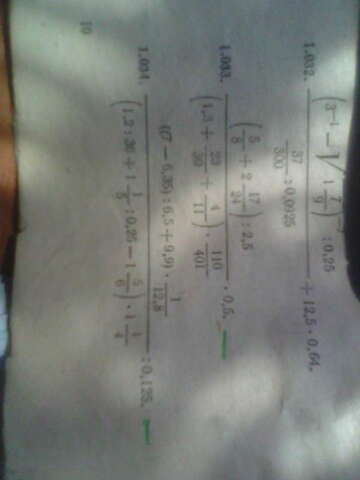 1.032. (3^{-1} - √(1 7/9))^{-} : 0,25 / (37/300 : 0,0925) + 12,5 · 0,64.
1.033. (5/8 + 2 17/24) : 2,5 / ((1,3 + 23/30 + 4/11) · 110/401) · 0,5.
1.034. ((7 − 6,35) : 6,5 + 9,9) · 1/12,8 / ((1,2 : 36 + 1 1/5 : 0,25 − 1 5/6) · 1 1/4) : 0,125.
10